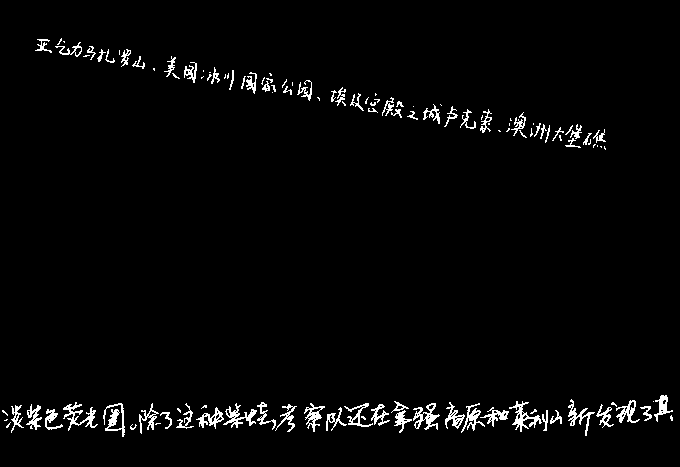 亚乞力马扎罗山、美国冰川国家公园、埃及宫殿之城卢克索、澳洲大堡礁
淡紫色荧光圈。除了这种柴蛙,考察队还在拿骚高原和莱利山新发现了其